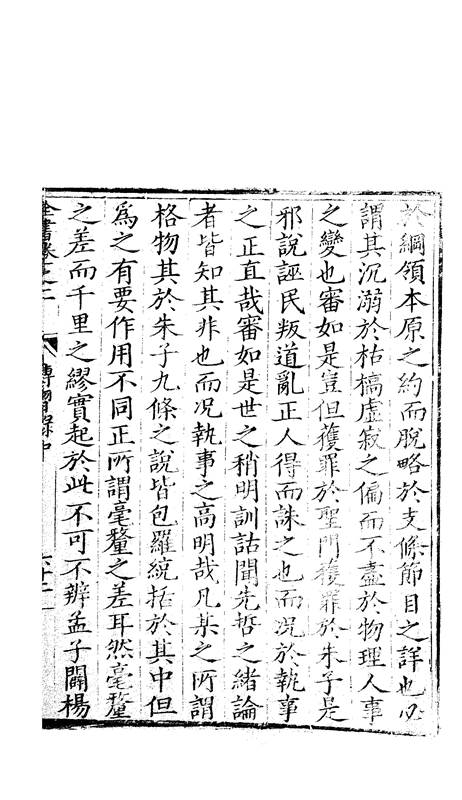 於綱領本原之約而脫略於支條節目之詳也必
謂其沉溺於枯槁虛寂之偏而不盡於物理人事
之變也審如是豈但獲罪於聖門獲罪於朱子是
邪說誣民叛道亂正人得而誅之也而况於執事
之正直哉審如是世之稍明訓詁聞先哲之緒論
者皆知其非也而况執事之高明哉凡某之所謂
格物其於朱子九條之說皆包羅統括於其中但
為之有要作用不同正所謂毫釐之差耳然毫釐
之差而千里之繆實起於此不可不辨孟子闢楊
全書卷之二 傳習錄中